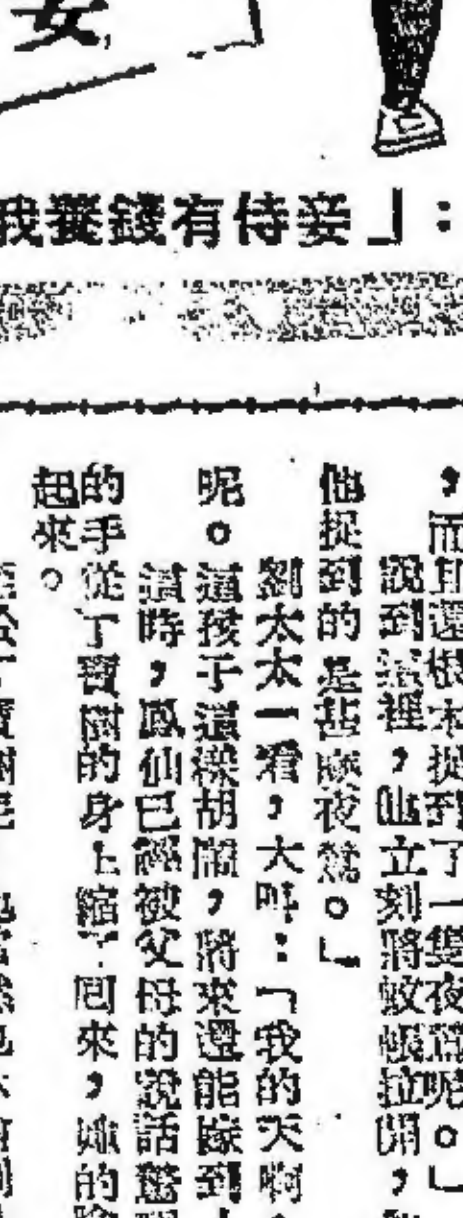 妾
我養錢有侍妾」：
，而且還根本捉到了一隻夜鶯呢。」
說到這裡，他立刻將蚊帳拉開，
他捉到的是甚麼夜鶯。」
劉太太一看，大叫：「我的天啊
呢。這孩子這樣胡鬧，將來還能嫁到
這時，鳳仙已經被父母的說話驚醒
的手從丁寶樹的身上縮了回來，她的
起來。